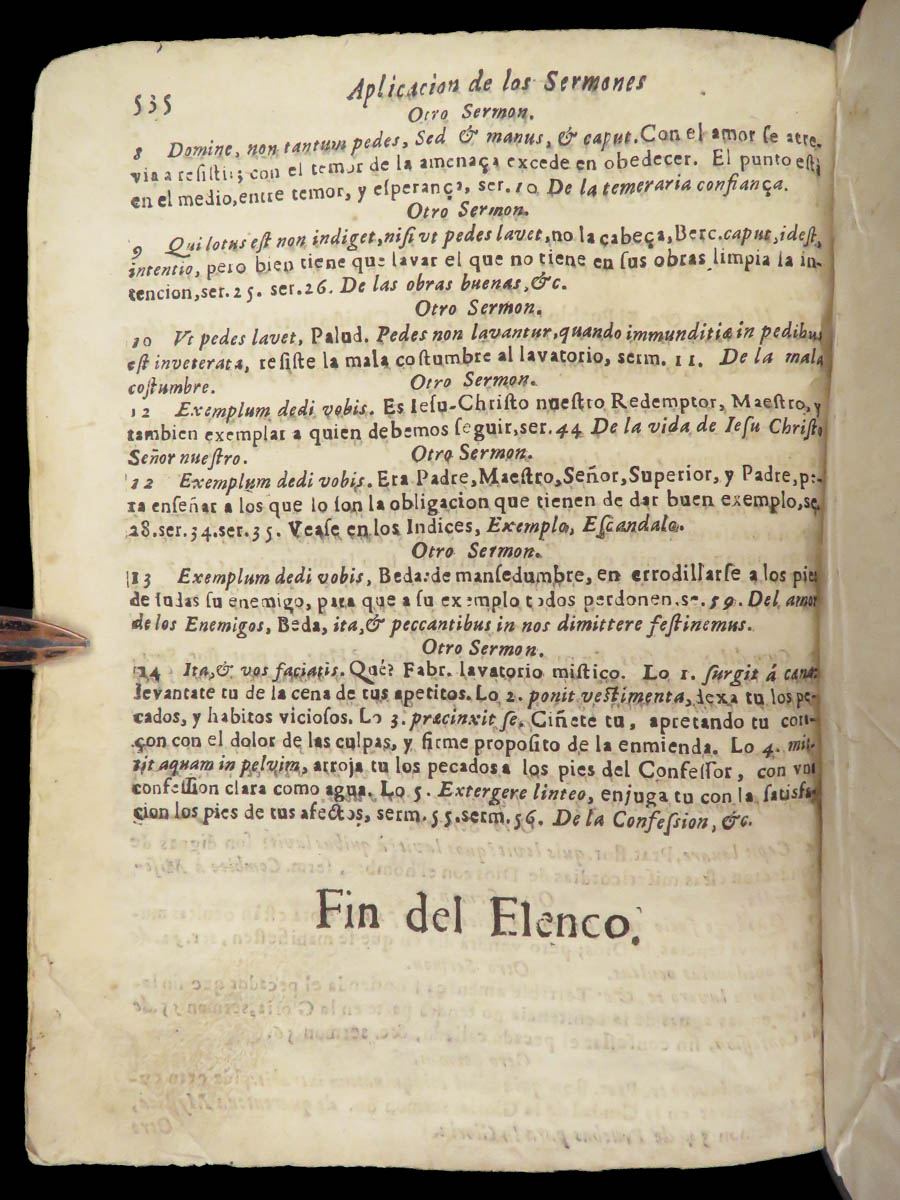 535
Aplicacion de los Sermones
Otro Sermon.
8 Domine, non tantum pedes, Sed & manus, & caput. Con el amor ſe atre-
via a reſiſtir; con el temor de la amenaça excede en obedecer. El punto eſtà
en el medio, entre temor, y eſperança, ser. 10 De la temeraria confiança.
Otro Sermon.
9 Qui lotus eſt non indiget, niſi vt pedes lavet, no la çabeça, Berc. caput, ideſt,
intentio, pero bien tiene que lavar el que no tiene en ſus obras limpia la in-
tencion, ser. 25. ser. 26. De las obras buenas, &c.
Otro Sermon.
10 Vt pedes lavet, Palud. Pedes non lavantur, quando immunditiæ in pedibus
eſt inveterata, reſiſte la mala coſtumbre al lavatorio, serm. 11. De la mala
coſtumbre.
Otro Sermon.
12 Exemplum dedi vobis. Es Ieſu-Chriſto nueſtro Redemptor, Maeſtro, y
tambien exemplar a quien debemos ſeguir, ser. 44 De la vida de Ieſu Chriſto
Señor nueſtro.
Otro Sermon.
12 Exemplum dedi vobis. Era Padre, Maeſtro, Señor, Superior, y Padre, pa-
ra enſeñar a los que lo ſon la obligacion que tienen de dar buen exemplo, se.
28. ser. 34. ser. 35. Veaſe en los Indices, Exemplo, Eſcandalo.
Otro Sermon.
13 Exemplum dedi vobis, Beda: de manſedumbre, en errodillarſe a los pies
de Iudas ſu enemigo, para que a ſu exemplo todos perdonen, se. 59. Del amor
de los Enemigos, Beda, ita, & peccantibus in nos dimittere feſtinemus.
Otro Sermon.
14 Ita, & vos faciatis. Què? Fabr. lavatorio miſtico. Lo 1. ſurgit á cana:
levantate tu de la cena de tus apetitos. Lo 2. ponit veſtimenta, dexa tu los pe-
cados, y habitos vicioſos. Lo 3. præcinxit ſe, Ciñete tu, apretando tu cora-
çon con el dolor de las culpas, y firme propoſito de la enmienda. Lo 4. mit-
tit aquam in pelvim, arroja tu los pecados a los pies del Confeſſor, con vna
confeſſion clara como agua. Lo 5. Extergere linteo, enjuga tu con la ſatisfa-
cion los pies de tus afectos, serm. 55. serm. 56. De la Confeſsion, &c.
Fin del Elenco.